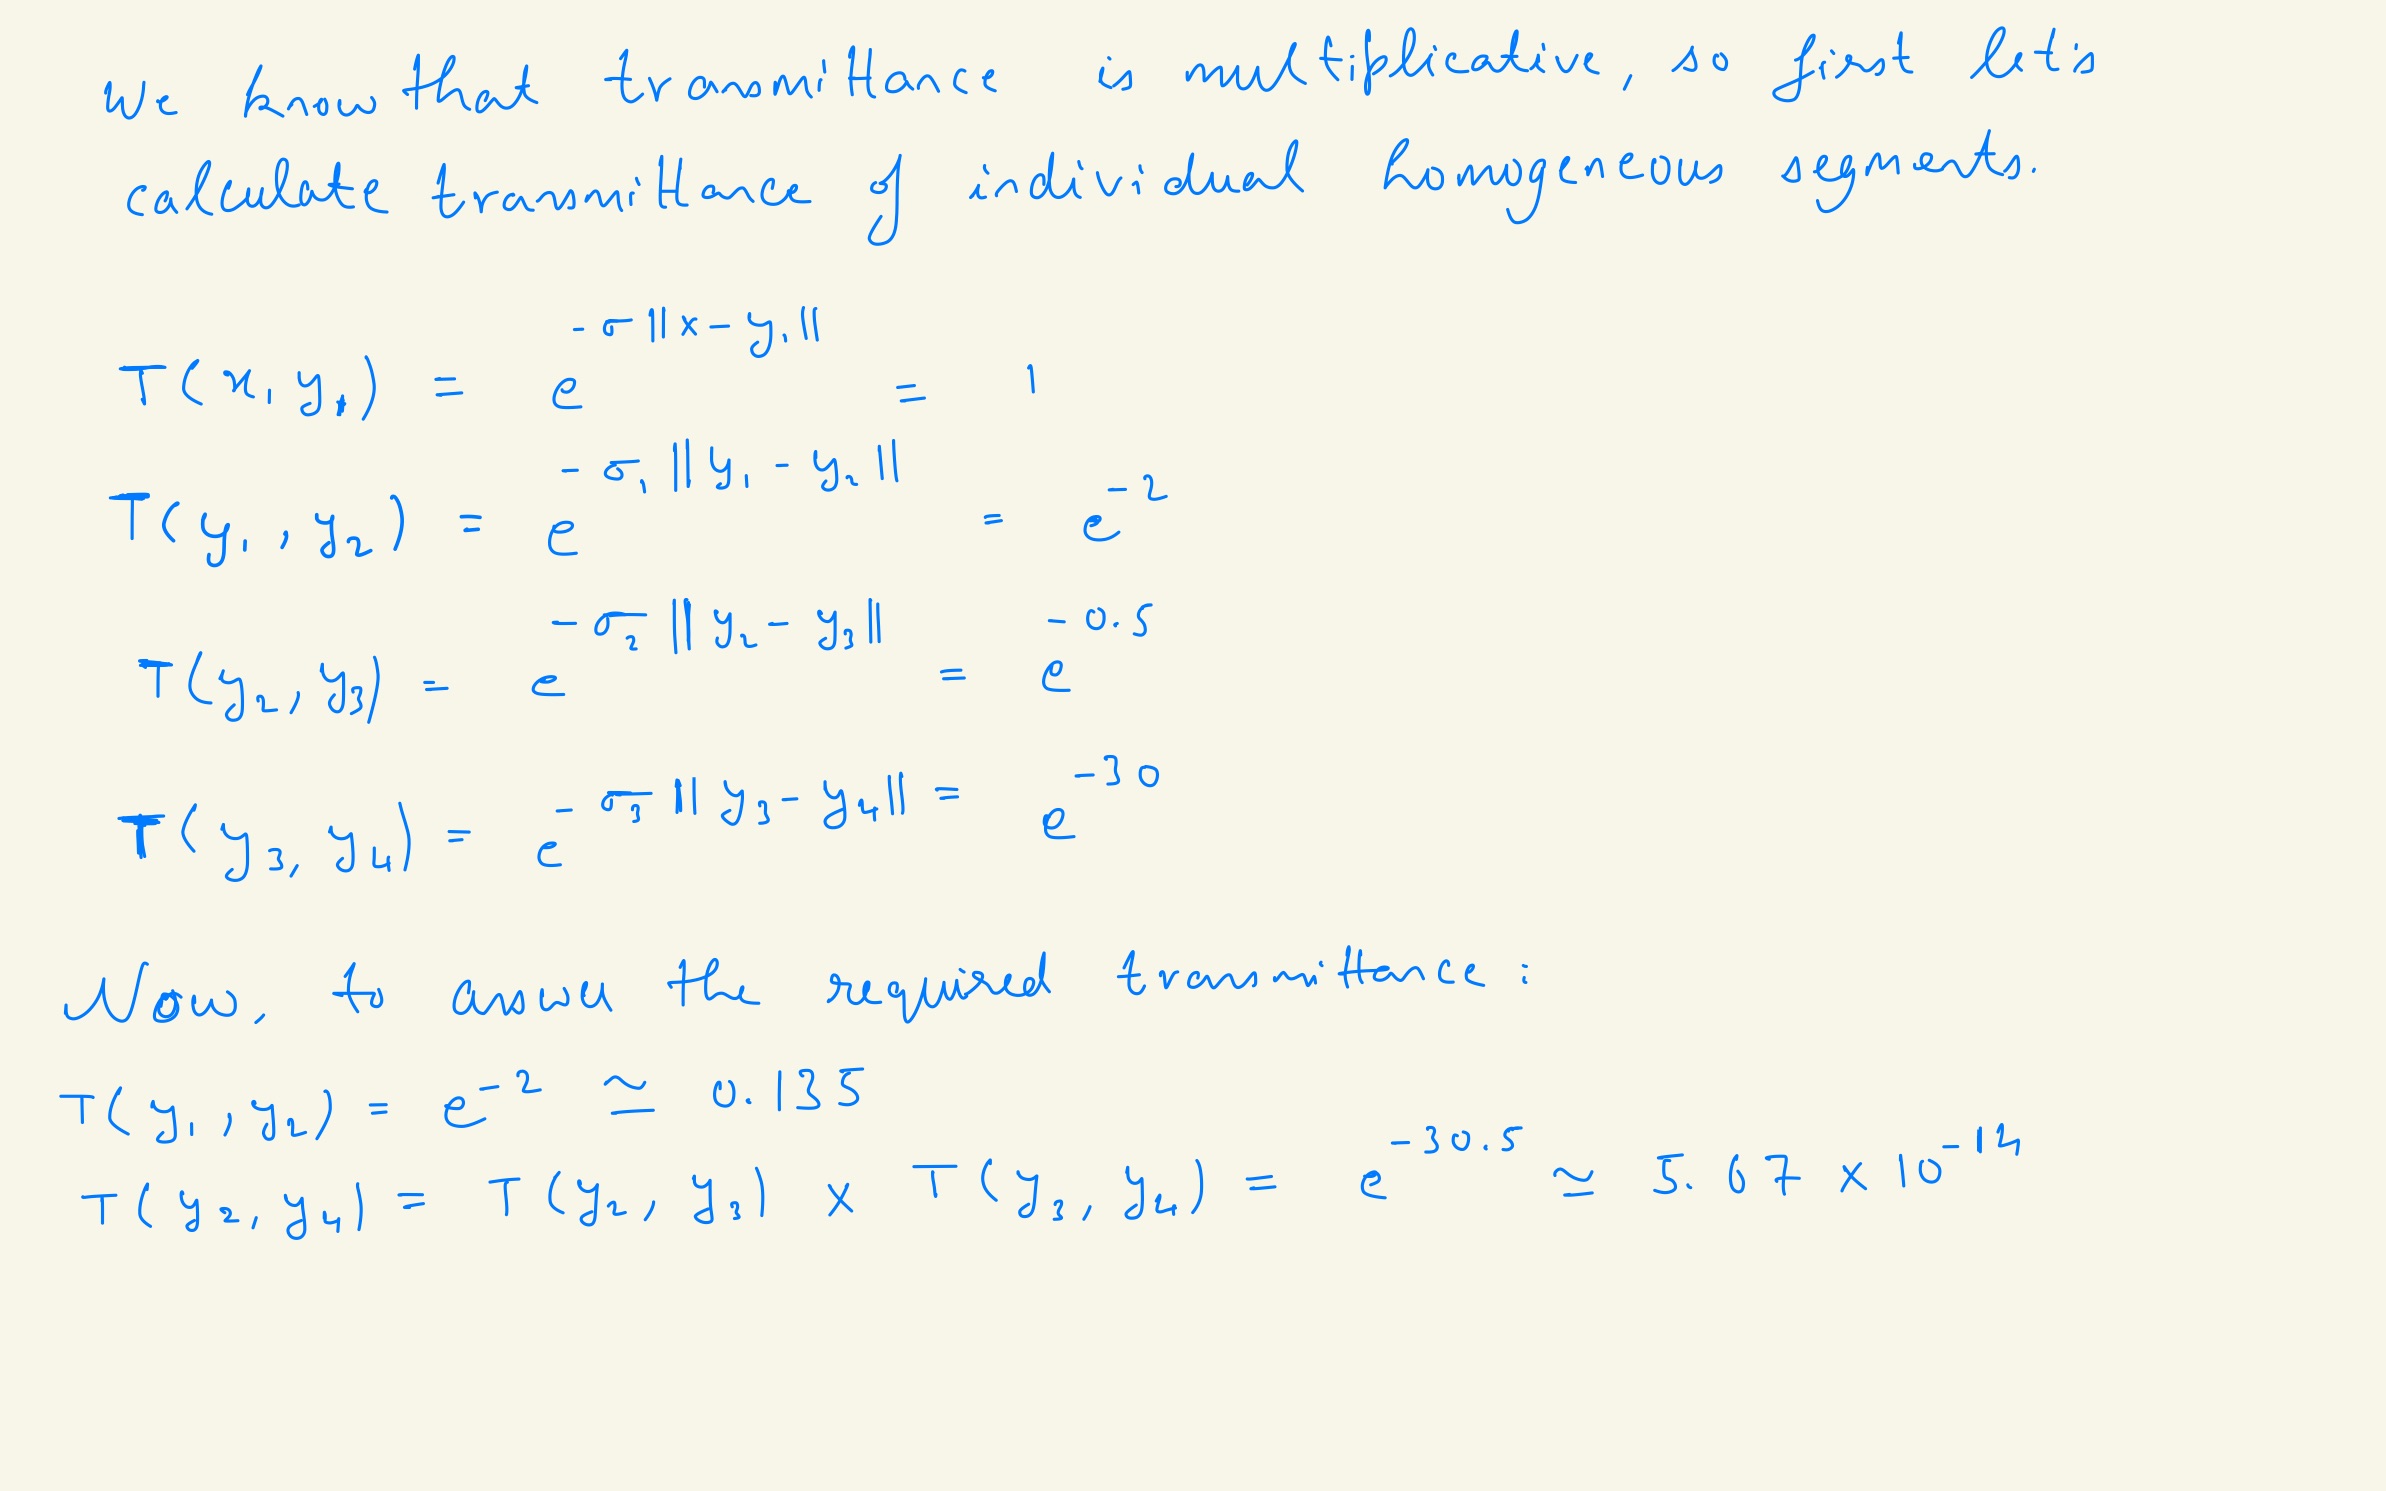 We know that transmittance is multiplicative, so first let's
calculate transmittance of individual homogeneous segments.
T(x, y₁) = e^{-σ||x-y₁||} = 1
T(y₁, y₂) = e^{-σ₁||y₁-y₂||} = e^{-2}
T(y₂, y₃) = e^{-σ₂||y₂-y₃||} = e^{-0.5}
T(y₃, y₄) = e^{-σ₃||y₃-y₄||} = e^{-30}
Now, to answer the required transmittance:
T(y₁, y₂) = e^{-2} ≃ 0.135
T(y₂, y₄) = T(y₂, y₃) × T(y₃, y₄) = e^{-30.5} ≃ 5.67 × 10^{-14}